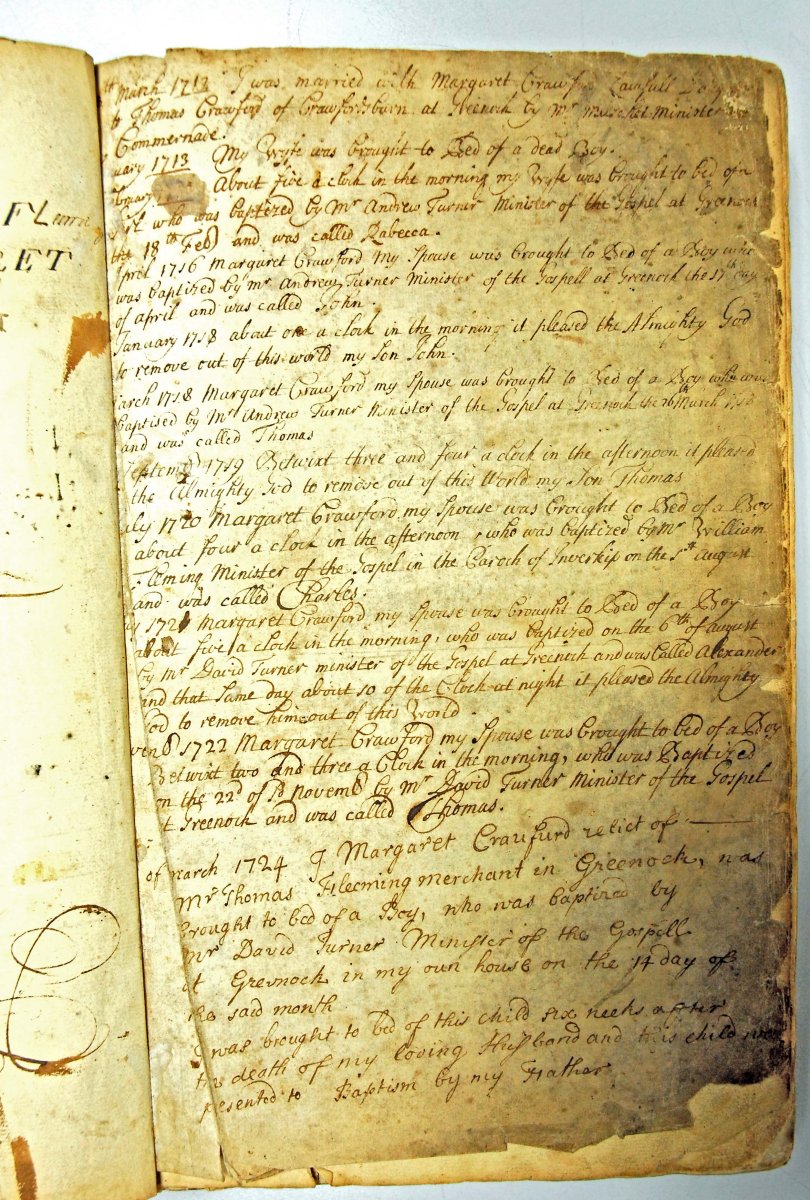 FLeming
RET
March 1712 I was married with Margaret Crawford Lawfull
to Thomas Crawford of Crawfordsburn at Greenock by Mr Minister
Commernade.
uary 1713 My Wyfe was brought to Bed of a dead Boy.
About five a clock in the morning my Wyfe was brought to bed of a
who was baptized by Mr Andrew Turner Minister of the Gospel at Greenock
the 18th Feb and was called Rabecca.
April 1716 Margaret Crawford my Spouse was brought to Bed of a Boy who
was baptized by Mr Andrew Turner Minister of the Gospell at Greenock the 17th day
of April and was called John.
January 1718 about one a clock in the morning it pleased the Almighty God
to remove out of this world my Son John.
March 1718 Margaret Crawford my Spouse was brought to Bed of a Boy who was
baptised by Mr Andrew Turner Minister of the Gospel at Greenock the 26th March 1718
and was called Thomas
Septembr 1719 Betwixt three and four a clock in the afternoon it pleas'd
the Almighty God to remove out of this World my Son Thomas
uly 1720 Margaret Crawford my Spouse was brought to Bed of a Boy
about four a clock in the afternoon who was baptized by Mr William
Fleming Minister of the Gospel in the Paroch of Inverkip on the 5th August
and was called Charles.
y 1721 Margaret Crawford my Spouse was brought to Bed of a Boy
about five a clock in the morning, who was baptized on the 6th of August
by Mr David Turner minister of the Gospel at Greenock and was Called Alexander
and that same day about 10 of the Clock at night it pleased the Almighty
God to remove him out of this World.
1722 Margaret Crawford my Spouse was brought to bed of a Boy
Betwixt two and three a Clock in the morning, who was Baptized
on the 22d of sd Novemb by Mr David Turner Minister of the Gospel
t Greenock and was called Thomas.
of march 1724 I Margaret Craufurd relict of
Mr Thomas Fleeming merchant in Greenock, was
brought to bed of a Boy, who was baptized by
Mr David Turner Minister of the Gospell
at Greenock in my own house on the 14 day of
the said month
I was brought to bed of this child six weeks after
the death of my loving Husband and this child was
presented to Baptism by my Father